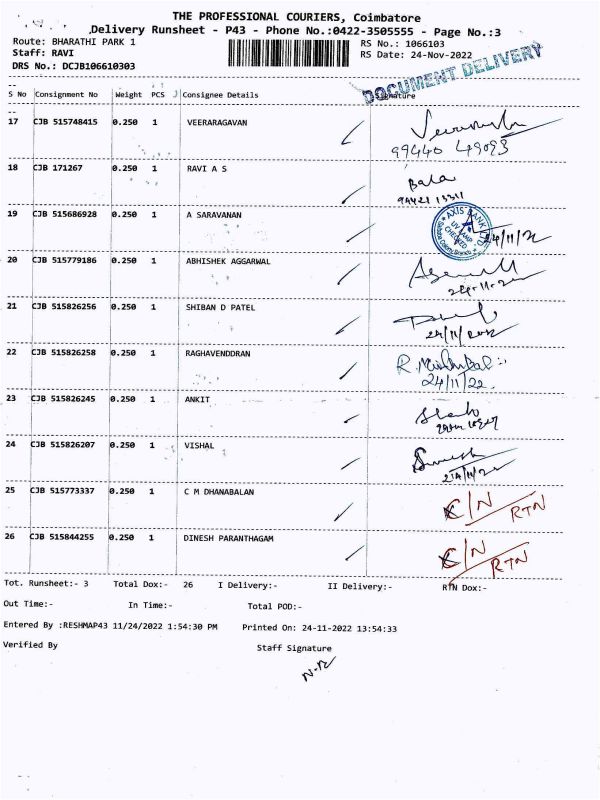 THE PROFESSIONAL COURIERS, Coimbatore
Delivery Runsheet - P43 - Phone No.:0422-3505555 - Page No.:3
Route: BHARATHI PARK 1 RS No.: 1066103
Staff: RAVI RS Date: 24-Nov-2022
DRS No.: DCJB106610303
DOCUMENT DELIVERY
S No Consignment No Weight PCS Consignee Details Signature
17 CJB 515748415 0.250 1 VEERARAGAVAN
99440 49093
18 CJB 171267 0.250 1 RAVI A S Bala
19 CJB 515686928 0.250 1 A SARAVANAN
AXIS BANK LTD
UV LAMP
CHECKED
24/11/22
20 CJB 515779186 0.250 1 ABHISHEK AGGARWAL
21 CJB 515826256 0.250 1 SHIBAN D PATEL
22 CJB 515826258 0.250 1 RAGHAVENDDRAN
24/11/22.
23 CJB 515826245 0.250 1 ANKIT
24 CJB 515826207 0.250 1 VISHAL
25 CJB 515773337 0.250 1 C M DHANABALAN C/N RTN
26 CJB 515844255 0.250 1 DINESH PARANTHAGAM C/N RTN
Tot. Runsheet:- 3 Total Dox:- 26 I Delivery:- II Delivery:- RTN Dox:-
Out Time:- In Time:- Total POD:-
Entered By :RESHMAP43 11/24/2022 1:54:30 PM Printed On: 24-11-2022 13:54:33
Verified By Staff Signature